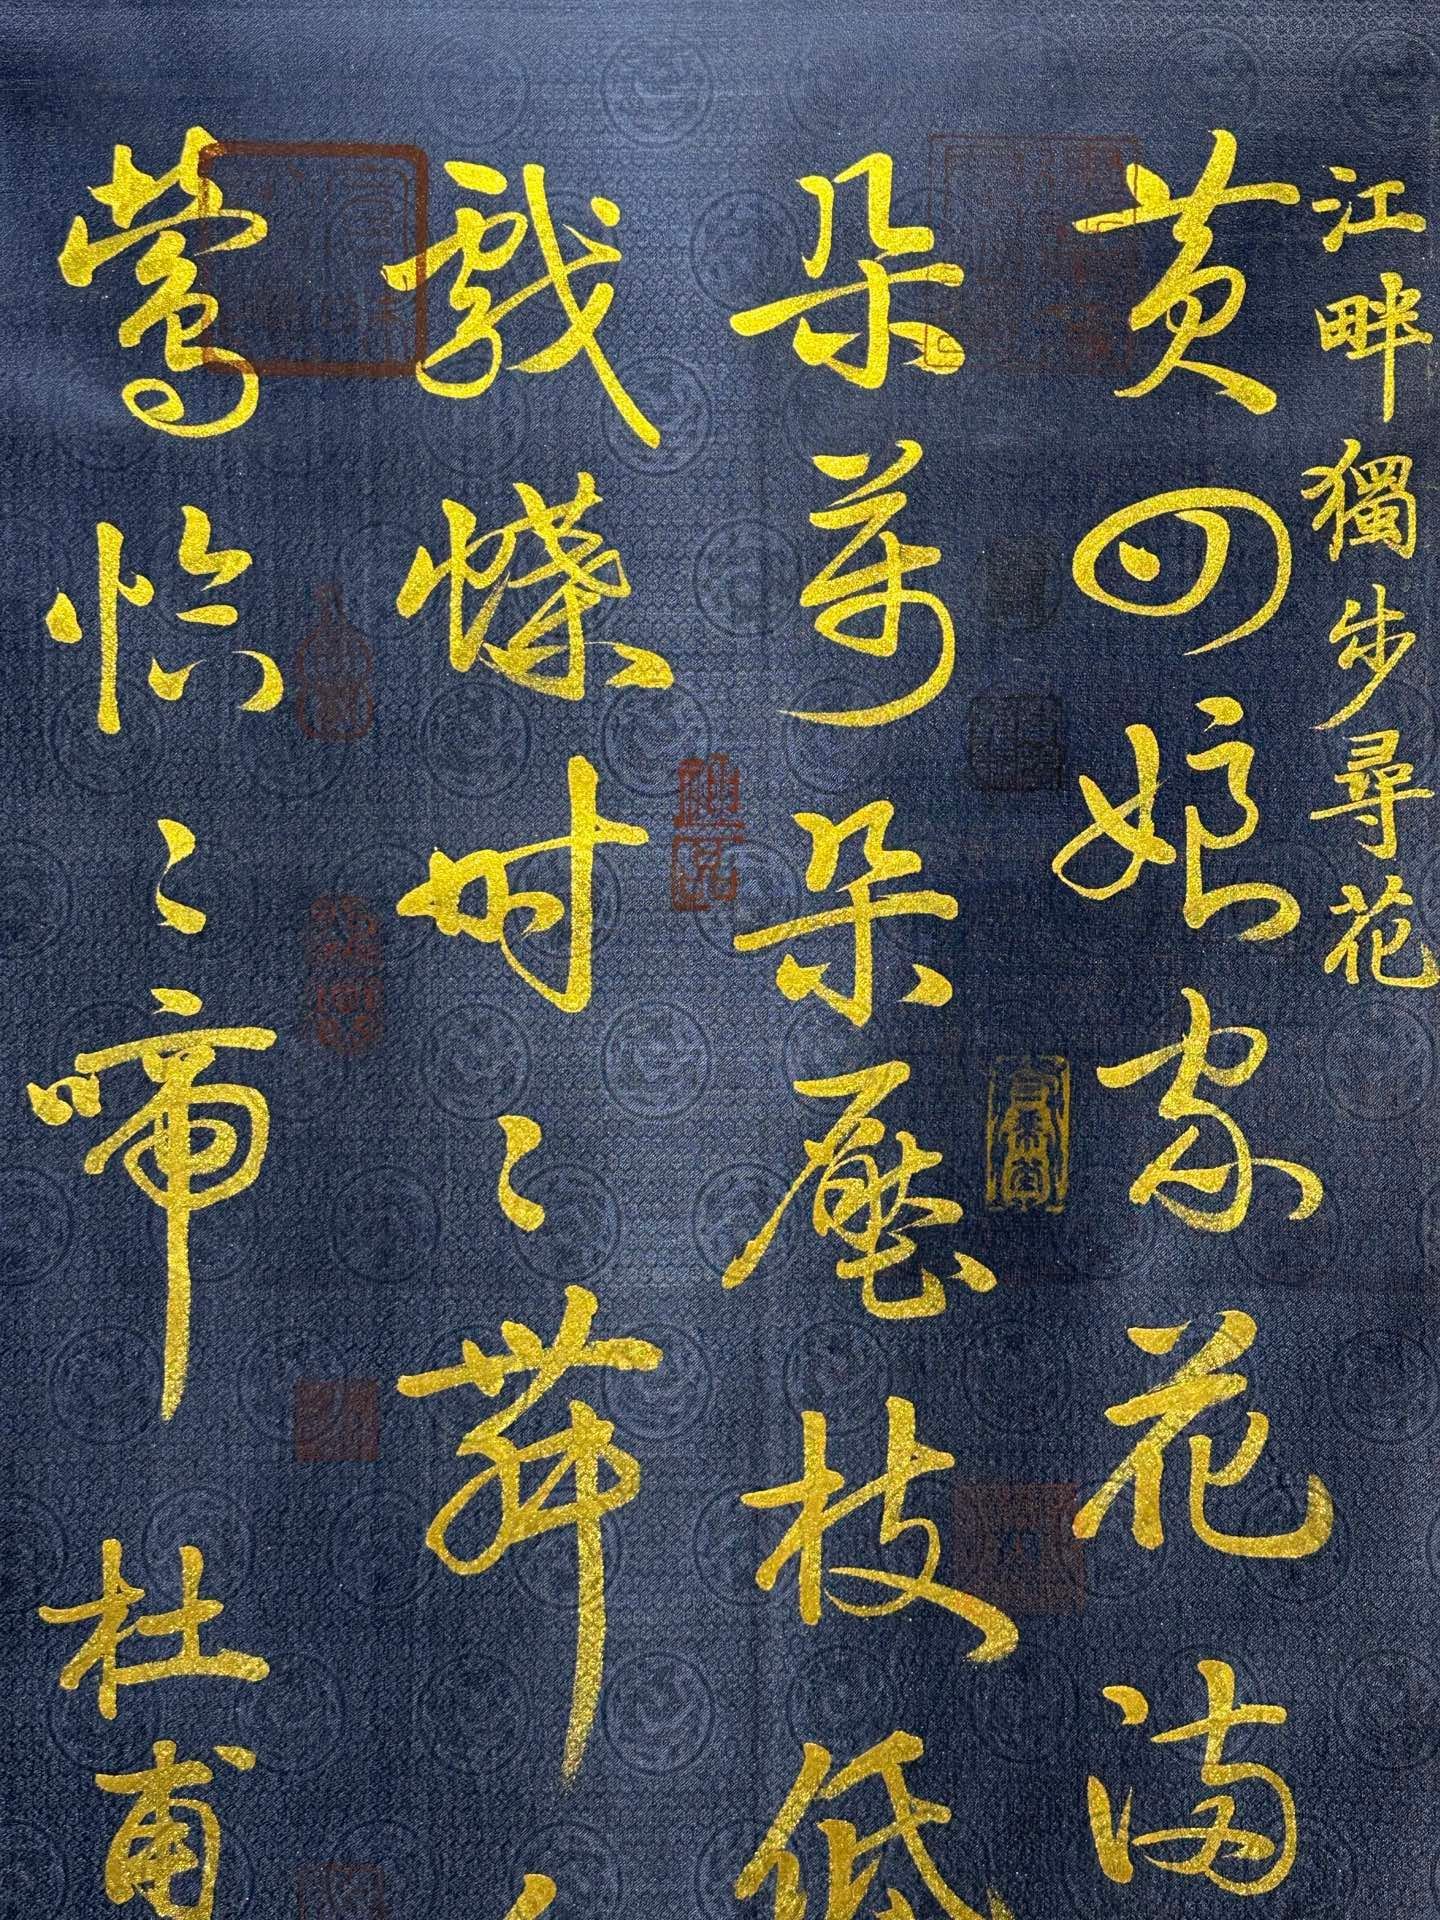 江畔獨步尋花
黃四娘家花滿
朵萬朵壓枝低
戲蝶時〻舞
鶯恰〻啼 杜甫